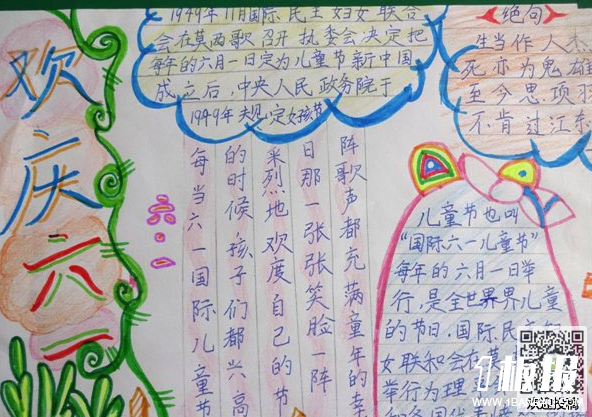 欢庆六一
1949年11月国际民主妇女联合
会在莫西歌召开执委会决定把
每年的六月一日定为儿童节新中国
成立后,中央人民政务院于
1949年规定女孩节
绝句
生当作人杰
死亦为鬼雄
至今思项羽
不肯过江东
六一
每当六一国际儿童节
的时候孩子们都兴高
采烈地欢度自己的节
日那一张张笑脸一阵
阵歌声都充满童年的幸
儿童节也叫
"国际六一儿童节"
每年的六月一日举
行,是全世界儿童
的节日,国际民主妇
女联和会在莫
举行为理
1板报
WWW.1BANBAO.COM
欢迎投稿